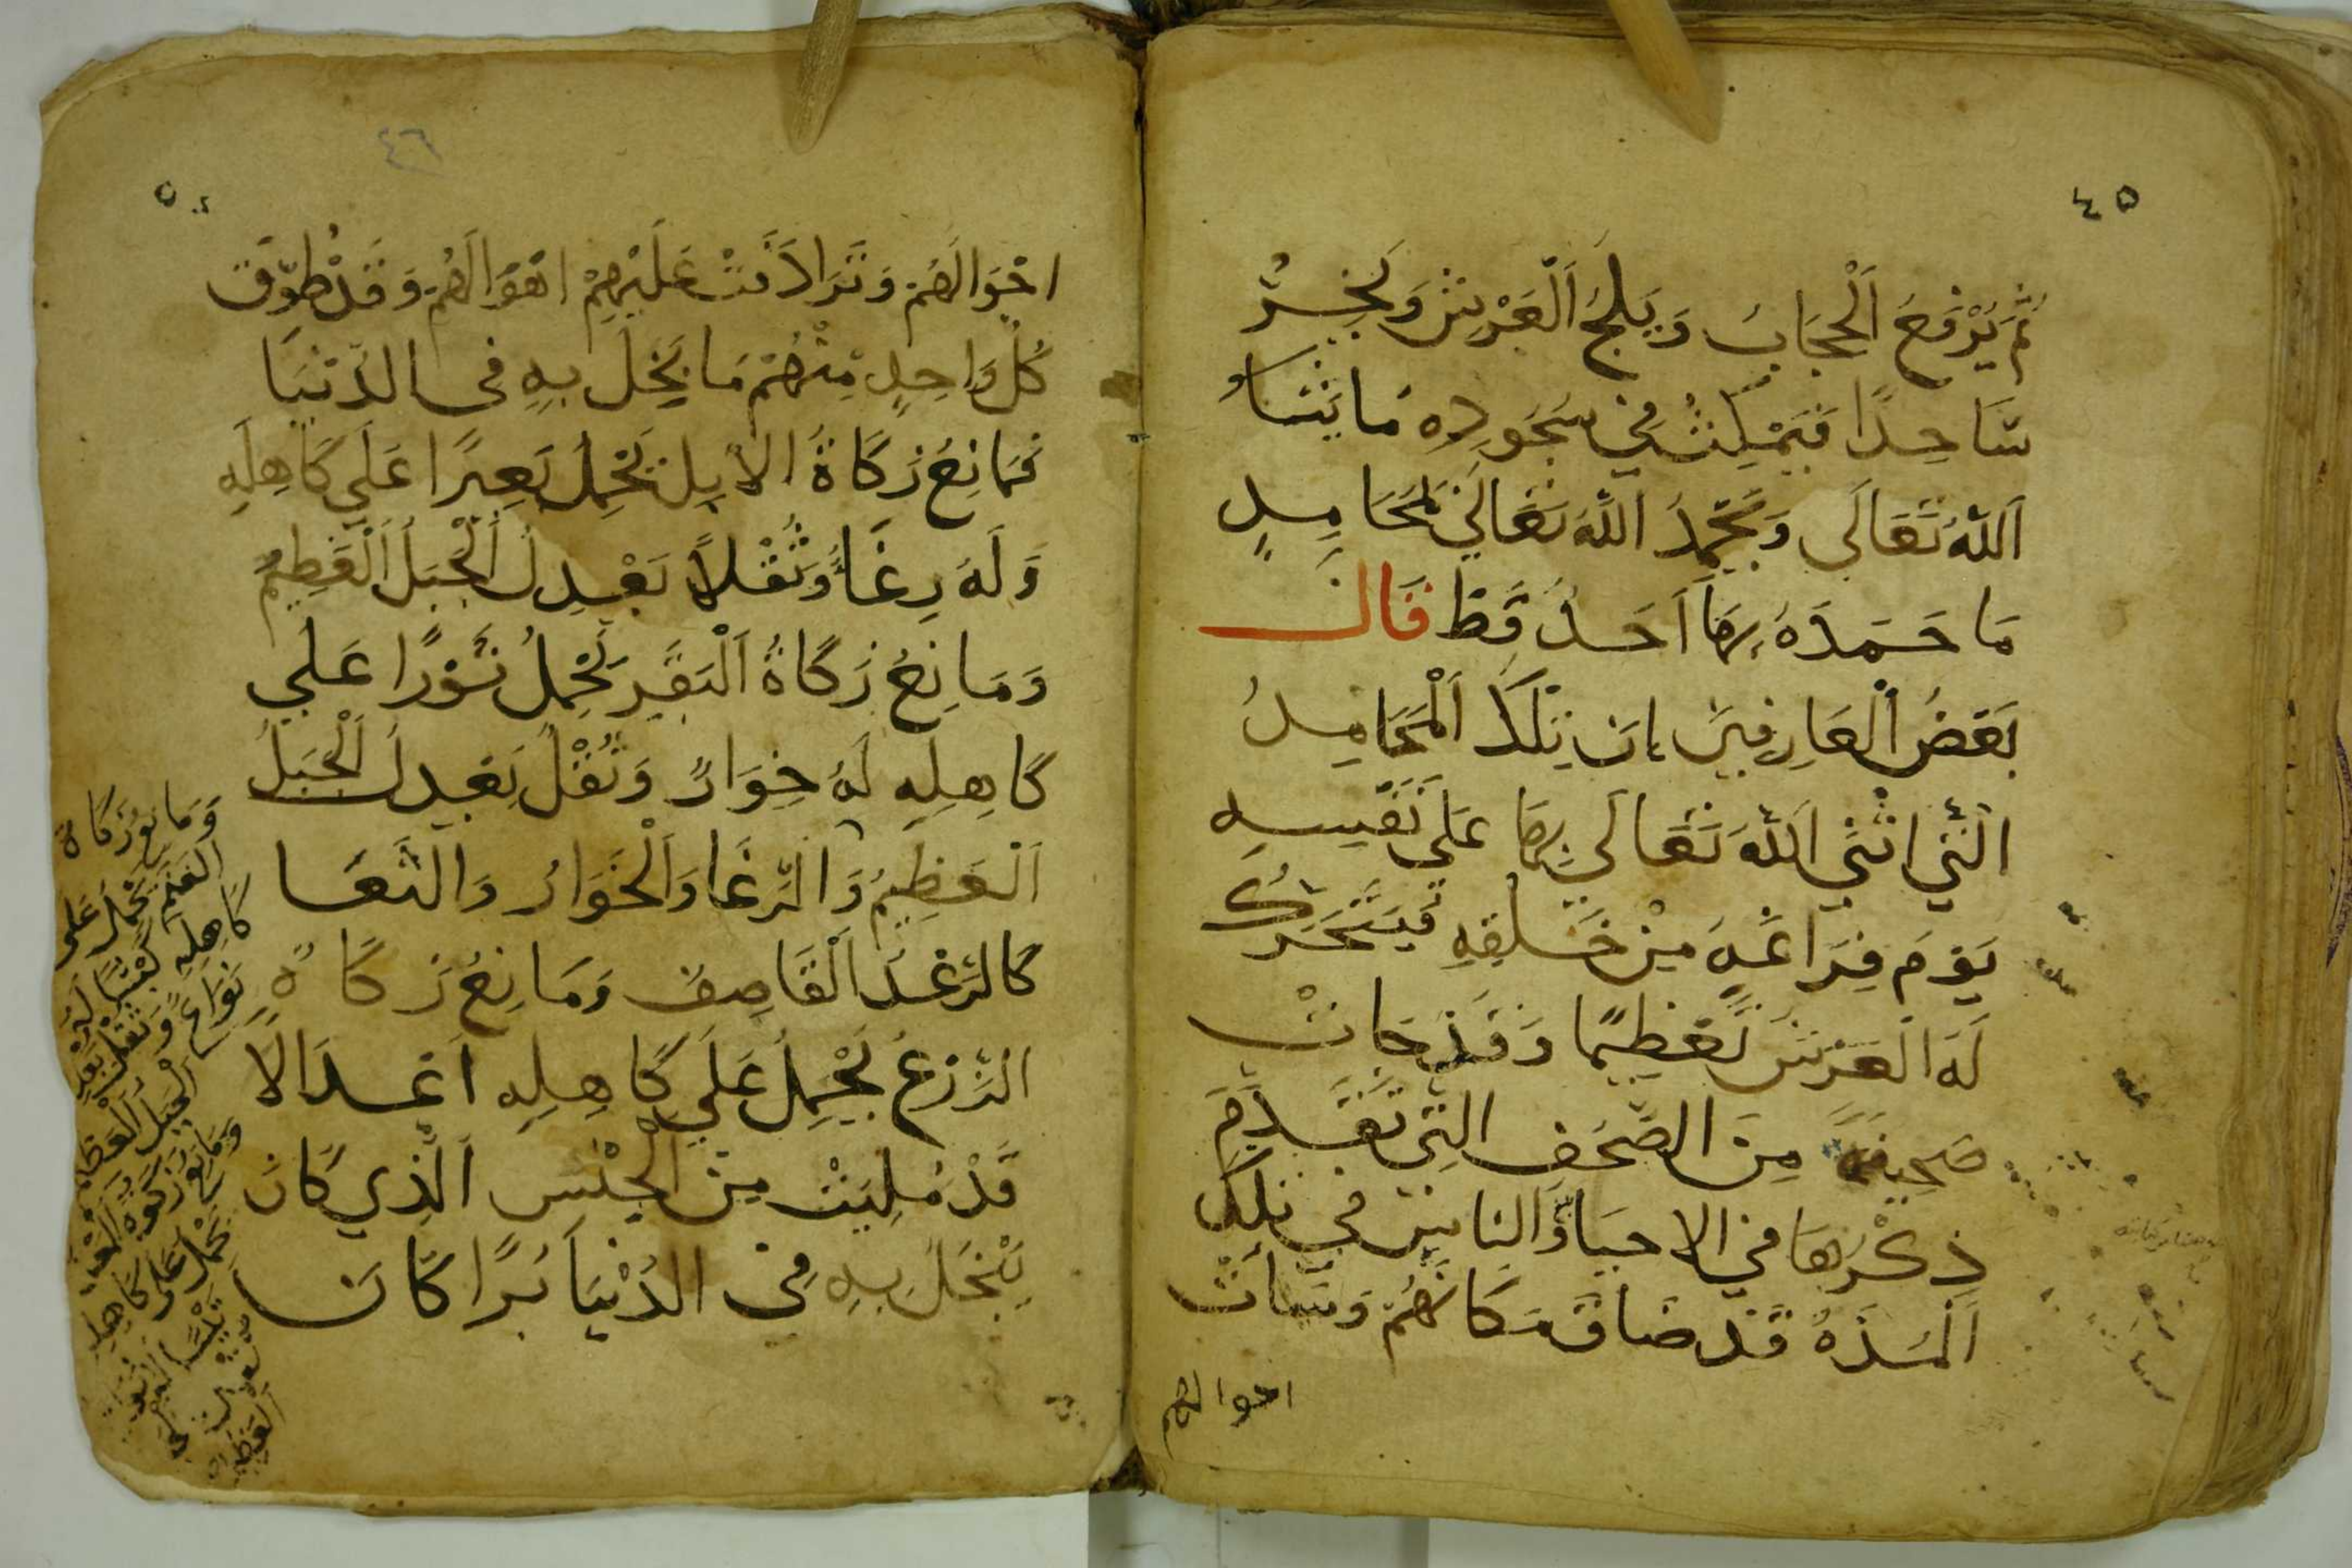 ٤٥
ثُمَّ يُرْفَعُ اَلْحِجَابُ وَيَلِجُ اَلْعَرْشَ وَيَخِرُّ
سَاجِدًا فَيَمْكُثُ فِي سُجُودِهِ مَا يَشَاءُ
اَللّٰهُ تَعَالَى وَيَحْمَدُ اللّٰهَ تَعَالَي بِمَحَامِدٍ
مَا حَمِدَهُ بِهَا اَحَدٌ قَطُّ قَالَ
بَعْضُ اَلْعَارِفِينَ اِنَ تِلْكَ اَلْمَحَامِدُ
الَّتِي اثْنَي اَللّٰهُ تَعَالَي بِهَا عَلَي نَفْسِهِ
يَوْمَ فِرَاغِهِ مِنْ خَلْقِهِ فَيَتَحَرَّكُ
لَهُ الْعَرْشُ تَعْظِيمًا وَقَدْ جَاتْ
صَحِيفَة مِنَ الصُّحُفِ الَّتِي تَقَدَّمَ
ذِكْرُهَا فِي الاحيا وَالناس فِي تِلْكَ
اَلْمُدَّةِ قَدْ ضَاقَ مَكَانُهُمْ وَسَاتْ
احوالهم
٤٦
احْوَالَهُمْ وَتَرَادَفَتْ عَلَيْهِمْ اهْوَالَهُمْ وَقَدْ طُوِّقَ
كُلُ وَاحِدٍ مِنْهُمْ مَا بَخِلَ بِهِ فِي الدُّنْيَا
فَمَانِعُ زَكَاةُ الاِبِلِ يَحْمِلُ بَعِيرًا عَلَي كَاهِلِهِ
وَلَهُ رِغَاءٌ وَثُقْلاً يَعْدِلُ اَلْجَبَلَ اَلْعَظِيمُ
وَمَانِعُ زَكَاةُ اَلْبَقَرِ يَحْمِلُ ثَوْرًا عَلَي
كَاهِلِهِ لَهُ خِوَارٌ وَثُقْلٌ يَعْدِلُ اَلْجَبَلُ
اَلْعَظِيمُ وَالرِّغَا وَاَلْخَوَارُ وَالثغَا
كَالرَّعْدِ اَلْقَاصِفُ وَمَانِعُ زَكَاةِ
الزَّرْعِ يَحْمِلُ عَلَي كَاهِلِهِ اَعْدَالا
قَدْ مُلِيَتْ مِنَ الْجِنْسِ اَلَّذِي كَانَ
يَبْخَلُ بِهِ فِي الدُنْيَا بُرًّا كَانَ
وَمَانِعُ زَكَاة
الغنم يَحْمِلُ عَلَى
كَاهِلِهِ كَبْشًا لَهُ